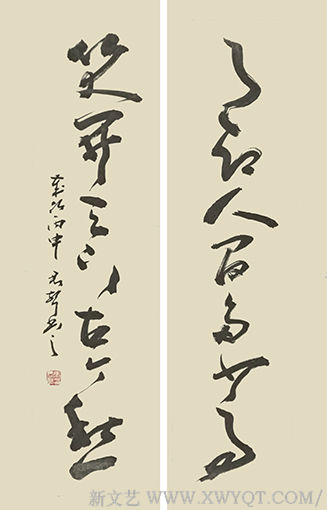 了却人間多少事
笑開天下古今愁
歲次丙申
新文艺 WWW.XWYQT.COM